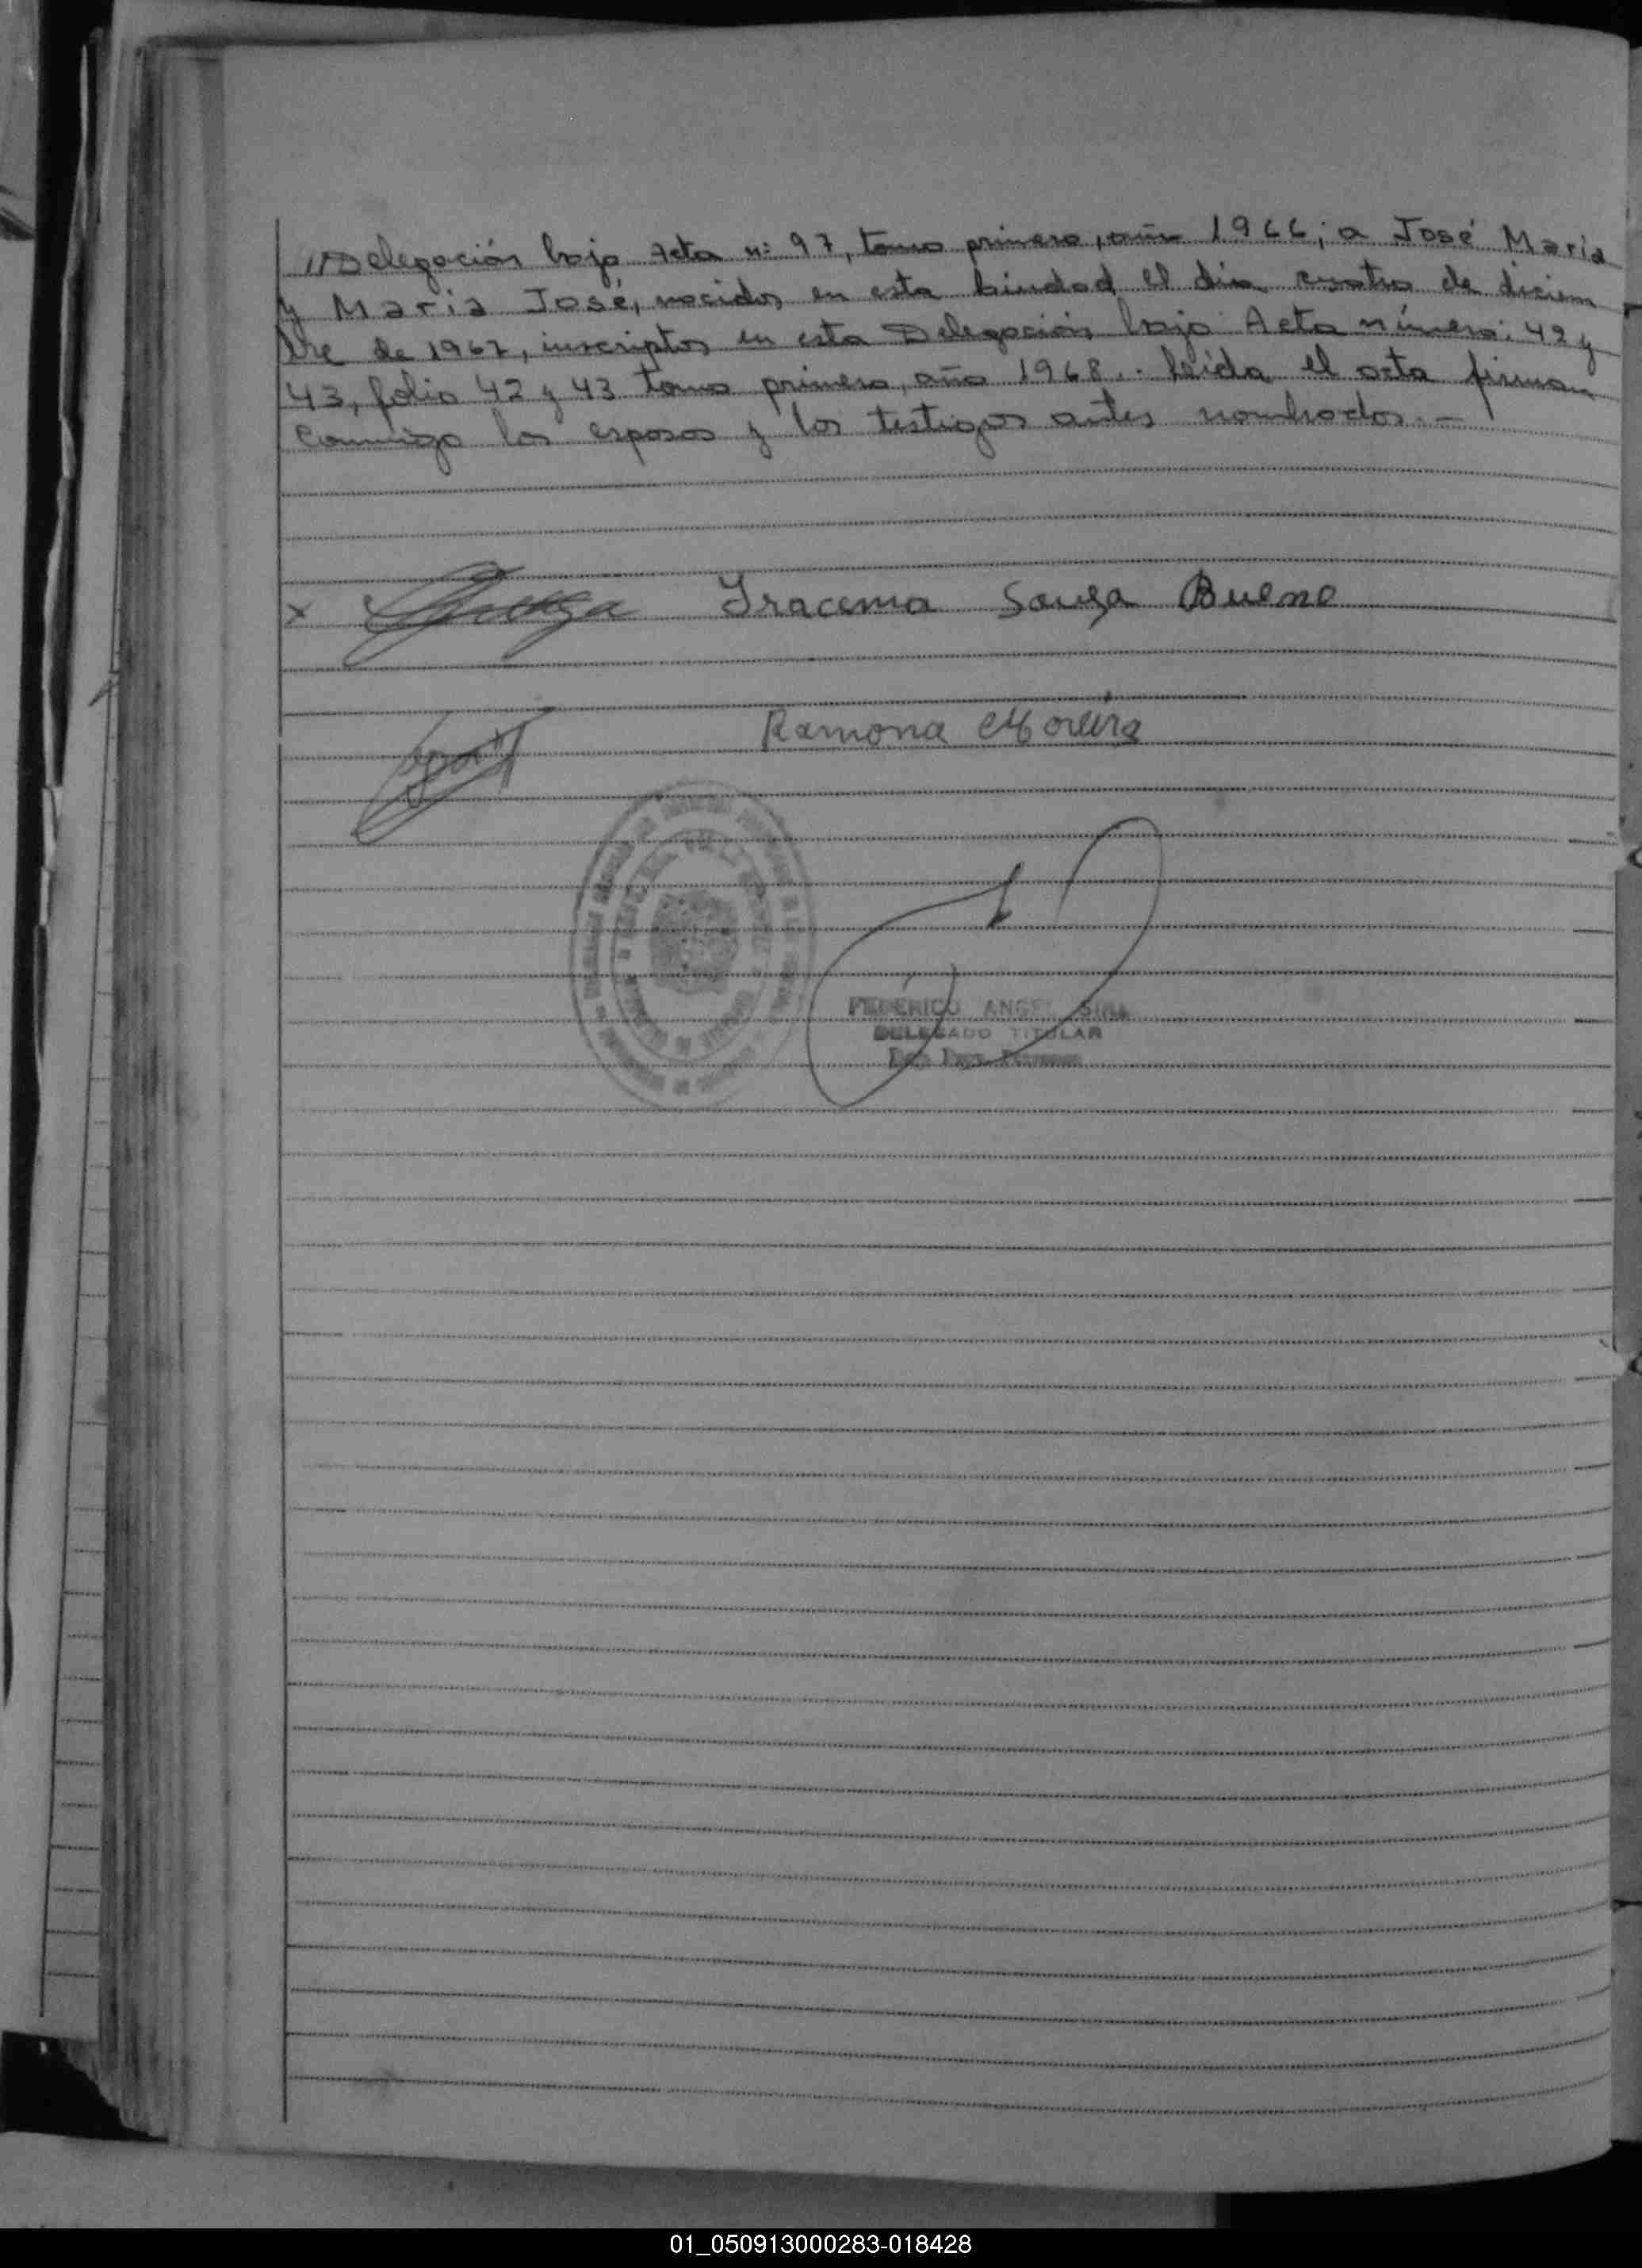 //Delegación bajo Acta nº 97, tomo primero, año 1966; a José Maria
y Maria José, nacidos en esta ciudad el dia cuatro de diciem
bre de 1967, inscriptos en esta Delegación bajo Acta número: 42 y
43, folio 42 y 43 tomo primero, año 1968.. Leida el acta firman
conmigo los esposos y los testigos antes nombrados.-
x Iracema Souza Bueno
Ramona Moreira
FEDERICO ANGEL
DELEGADO TITULAR
01_050913000283-018428